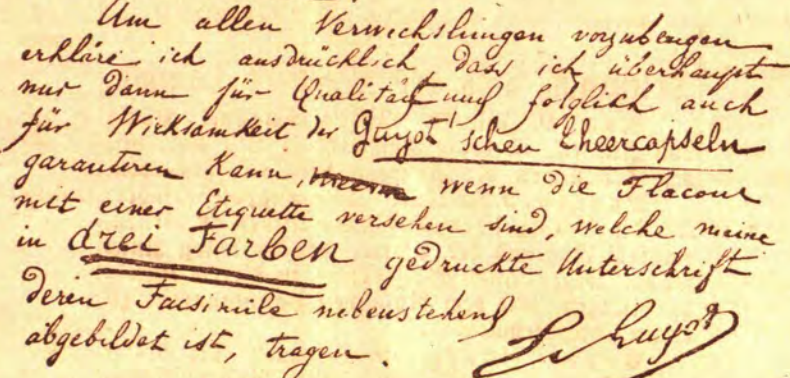 Um allen Verwechslungen vorzubeugen
erkläre ich ausdrücklich dass ich überhaupt
nur dann für Qualität und folglich auch
für Wirksamkeit der Guyot'schen Theercapseln
garantiren Kann, wenn die Flacons
mit einer Etiquette versehen sind, welche meine
in drei Farben gedruckte Unterschrift
deren Facsimile nebenstehend
abgebildet ist, tragen.
Guyot